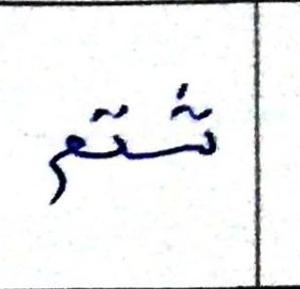 شتم